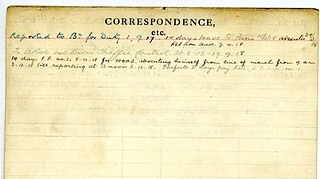 CORRESPONDENCE,
etc.
Reported to Bn for Duty 2.9.17. 14 days leave to Paris
Ret from leave. 9.4.18
To A Corps Traffic Control 31-8-18 - 17.9.18
10 days F.P. no. 1. 5.12.18 for WOAS, absenting himself from line of march from 9 am
3.12.18 till reporting at 12 noon 3.12.18. Forfeits days pay